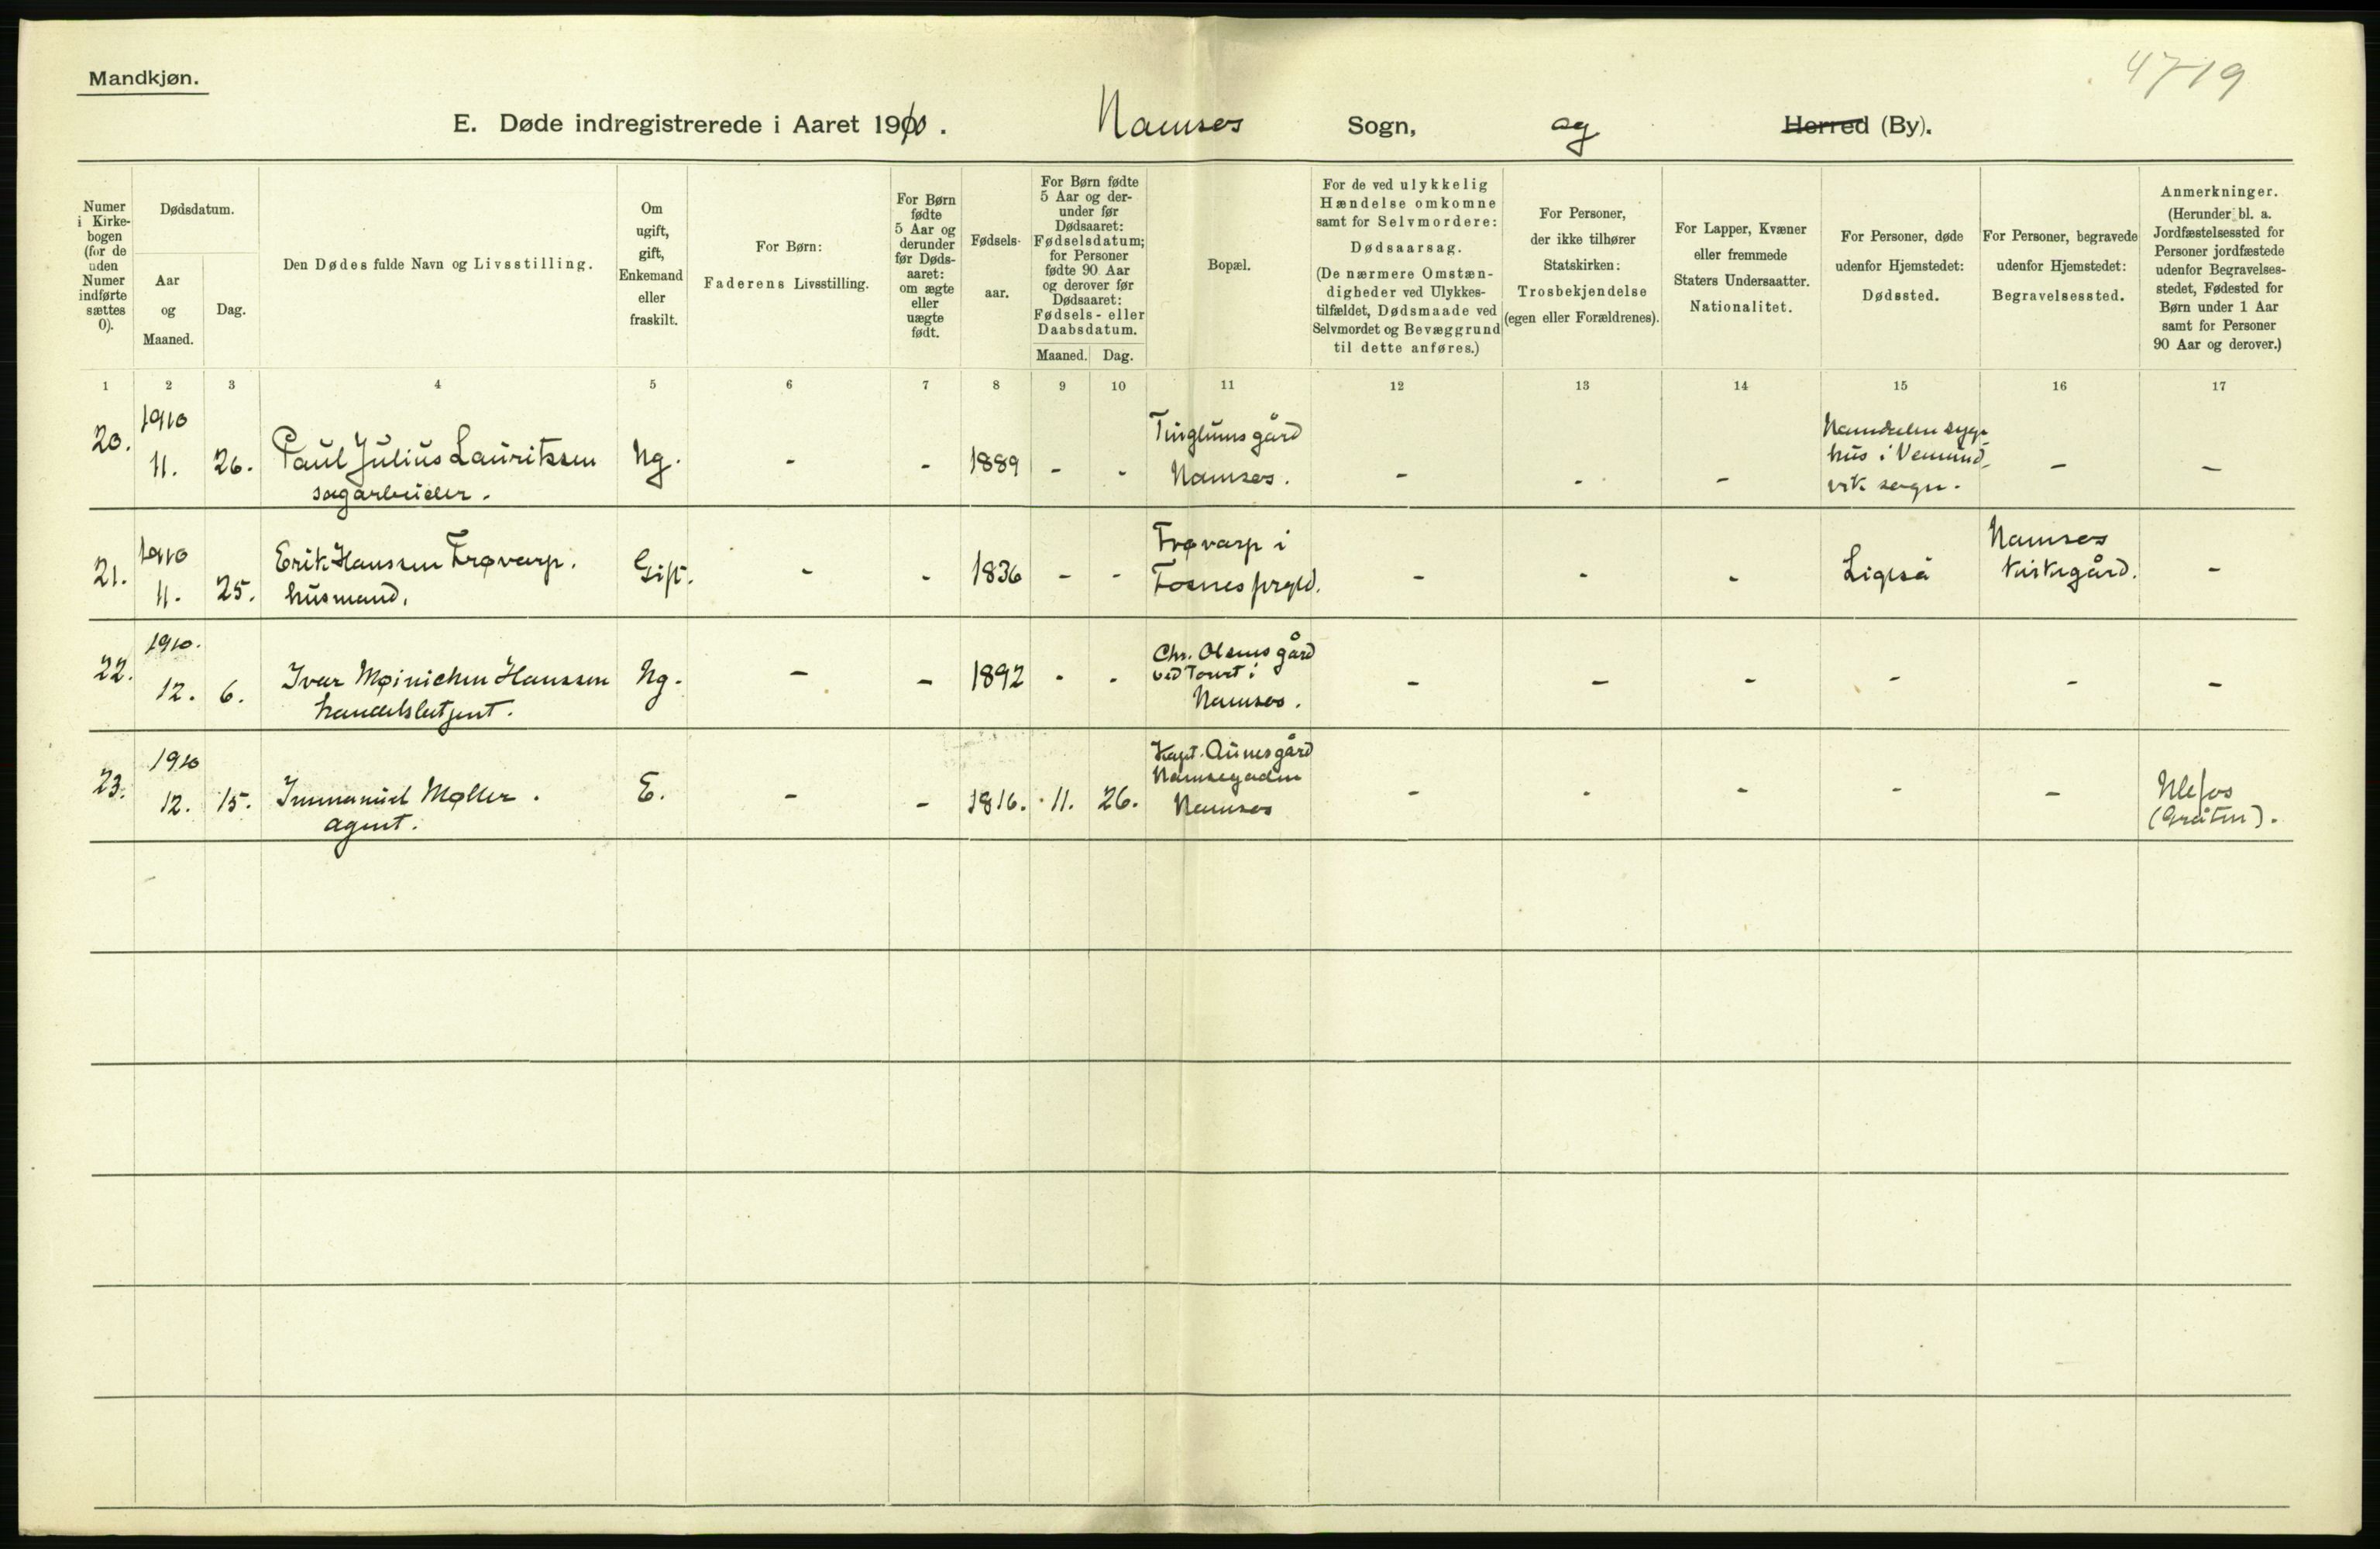 Mandkjøn.
4719
E. Døde indregistrerede i Aaret 1910. Namsos Sogn, og Herred (By).
Numer
i Kirke-
bogen
(for de
uden
Numer
indførte
sættes
0).
Dødsdatum.
Aar
og
Maaned.
Dag.
Den Dødes fulde Navn og Livsstilling.
Om
ugift,
gift,
Enkemand
eller
fraskilt.
For Børn:
Faderens Livsstilling.
For Børn
fødte
5 Aar og
derunder
før Døds-
aaret:
om ægte
eller
uægte
født.
Fødsels-
aar.
For Børn fødte
5 Aar og der-
under før
Dødsaaret:
Fødselsdatum;
for Personer
fødte 90 Aar
og derover før
Dødsaaret:
Fødsels- eller
Daabsdatum.
Maaned. Dag.
Bopæl.
For de ved ulykkelig
Hændelse omkomne
samt for Selvmordere:
Dødsaarsag.
(De nærmere Omstæn-
digheder ved Ulykkes-
tilfældet, Dødsmaade ved
Selvmordet og Bevæggrund
til dette anføres.)
For Personer,
der ikke tilhører
Statskirken:
Trosbekjendelse
(egen eller Forældrenes).
For Lapper, Kvæner
eller fremmede
Staters Undersaatter.
Nationalitet.
For Personer, døde
udenfor Hjemstedet:
Dødssted.
For Personer, begravede
udenfor Hjemstedet:
Begravelsessted.
Anmerkninger.
(Herunder bl. a.
Jordfæstelsessted for
Personer jordfæstede
udenfor Begravelses-
stedet, Fødested for
Børn under 1 Aar
samt for Personer
90 Aar og derover.)
1 2 3 4 5 6 7 8 9 10 11 12 13 14 15 16 17
20.
1910
11. 26.
Paul Julius Lauritssen
sagarbeider.
Ug.
-
-
1889
-
-
Namsos.
-
-
-
hus i Vemund-
vik sogn.
-
-
21.
1910
11. 25.
Erik Hanssen Frøvarp.
husmand.
Gift.
-
-
1836
-
-
Frøvarp i
Fosnes prgld.
-
-
-
Namsos
kirkegård.
-
22.
1910.
12. 6.
Ivar Moinichen Hanssen
handelsbetjent.
Ug.
-
-
1892
-
-
Chr. Olsens gård
ved Torvet i
Namsos.
-
-
-
-
-
-
23.
1910
12. 15.
Immanuel Møller.
agent.
E.
-
-
1816. 11. 26.
Kapt. Aunes gård
Namsegaden
Namsos
-
-
-
-
-
Ulefos
(Gråten).